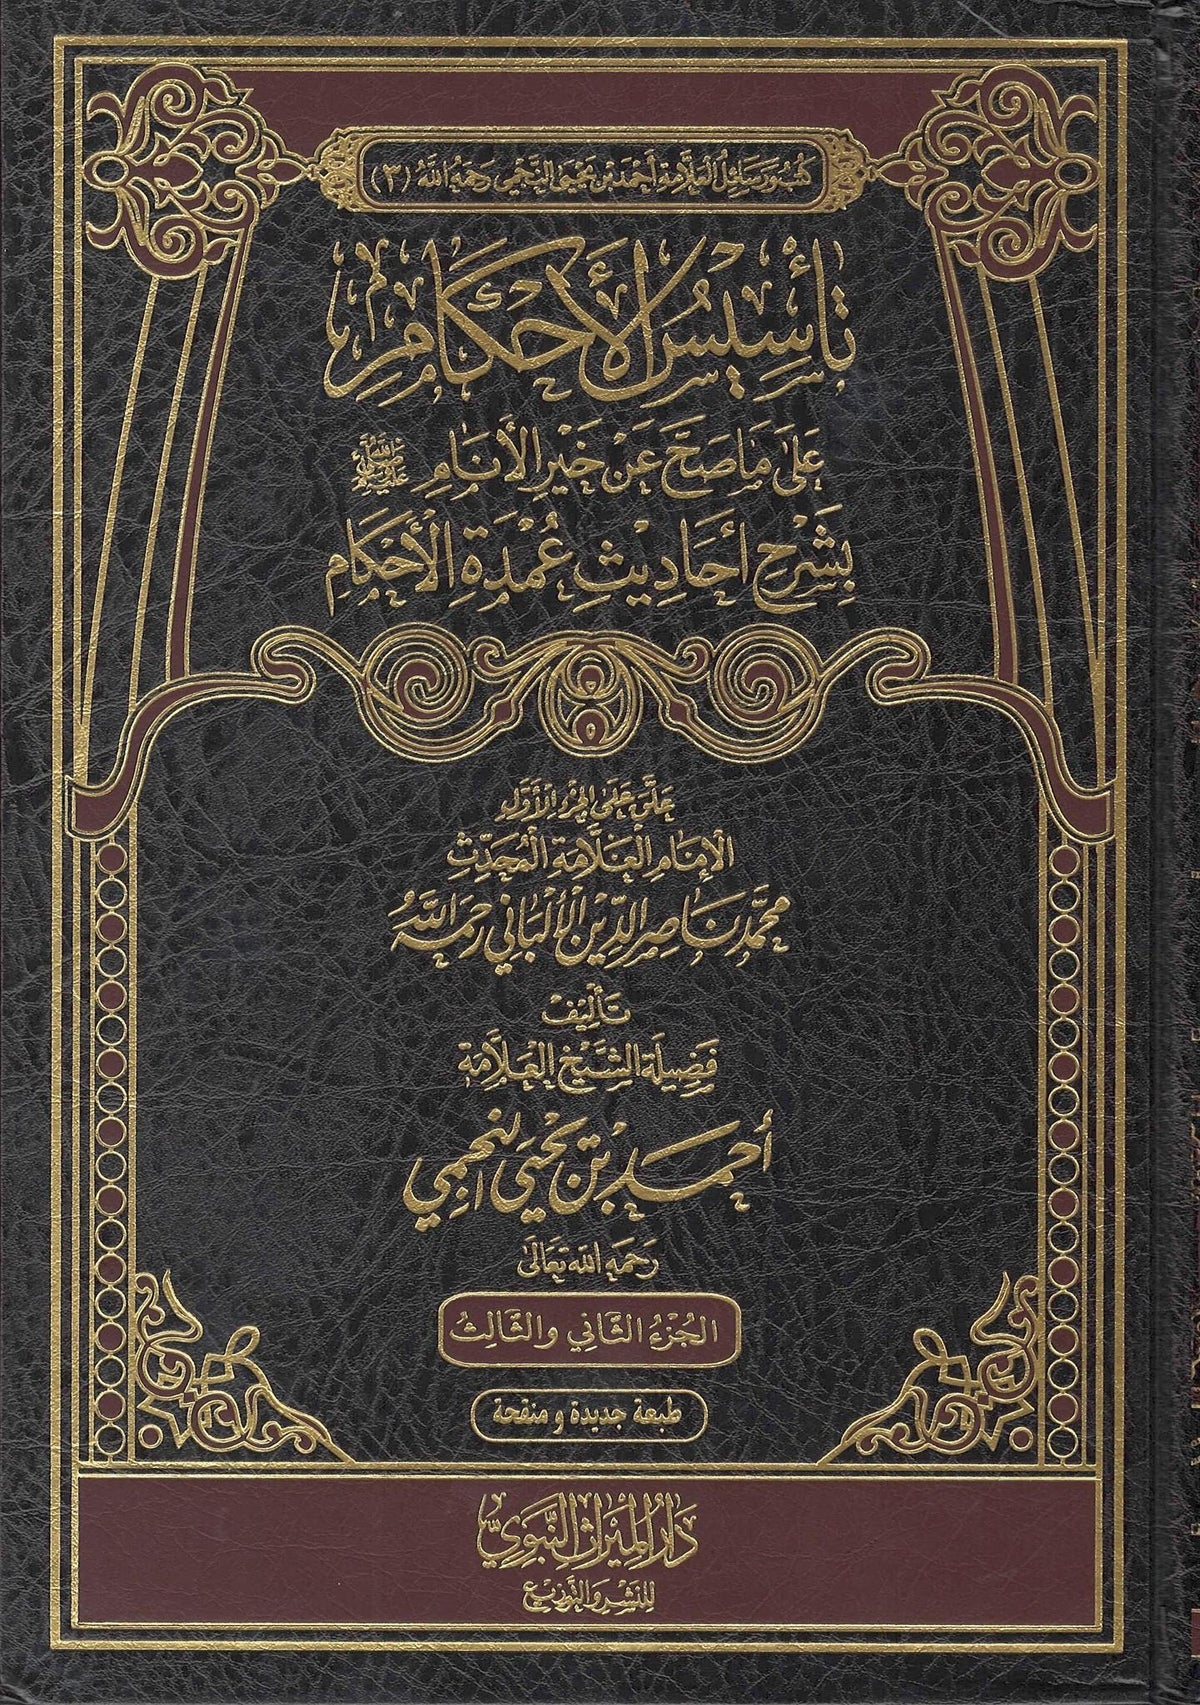 كتب ورسائل العلامة أحمد بن يحيى النجمي رحمه الله (٣)
تأسيس الأحكام
على ما صح عن خير الأنام ﷺ
بشرح أحاديث عمدة الأحكام
علق على الجزء الأول
الإمام العلامة المحدث
محمد ناصر الدين الألباني رحمه الله
تأليف
فضيلة الشيخ العلامة
أحمد بن يحيى النجمي
رحمه الله تعالى
الجزء الثاني والثالث
طبعة جديدة و منقحة
دار الميراث النبوي
للنشر والتوزيع